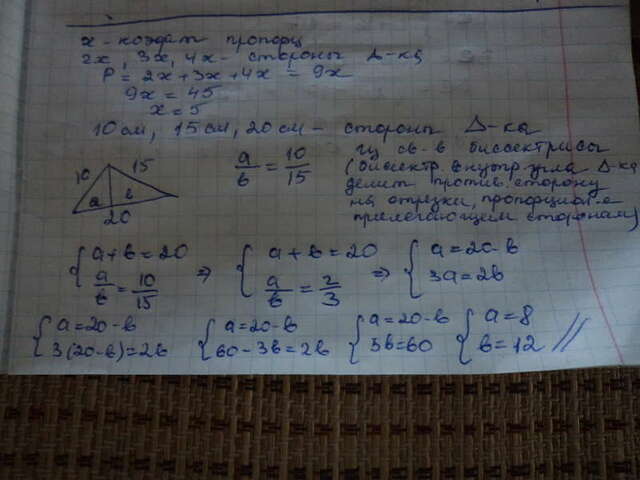 x - коэфт пропорц
2x, 3x, 4x - стороны Δ-ка
P = 2x + 3x + 4x = 9x
9x = 45
x = 5
10 см, 15 см, 20 см - стороны Δ-ка
a/в = 10/15
Из св-в биссектрисы
(биссектр. внутр. угла Δ-ка
делит против. сторону
на отрезки, пропорциол-е
прилегающим сторонам)
10 15
a в
20
{ a + в = 20 a/в = 10/15 ⇒ { a + в = 20 a/в = 2/3 ⇒ { a = 20 - в 3a = 2в
{ a = 20 - в 3(20 - в) = 2в { a = 20 - в 60 - 3в = 2в { a = 20 - в 5в = 60 { a = 8 в = 12 //